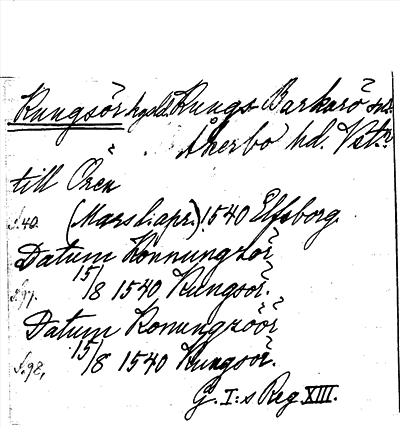 Kungsör kgsld. Kungs Barkarö sn.
Åkerbo hd. Vstm.
till Ören
S.40. (Mars l. apr.) 1540 Elfsborg.
Datum Konnungzör
S.97. 15/8 1540 Kungsör.
Datum Konungzöör
S.98. 15/8 1540 Kungsör.
G. I:s Reg. XIII.